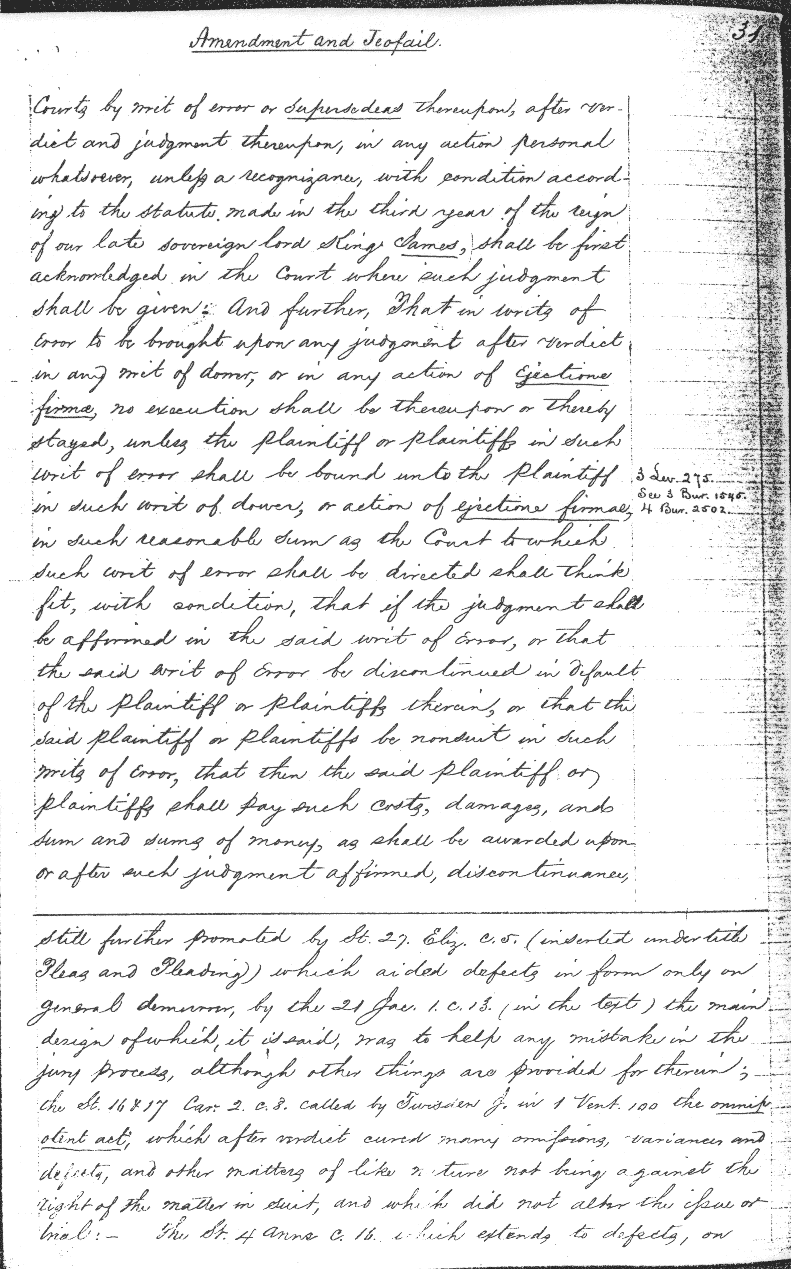 Amendment and Jeofail.
31
Courts by writ of error or supersedeas thereupon, after ver-
dict and judgment thereupon, in any action personal
whatsoever, unless a recognizance, with condition accord-
ing to the statute made in the third year of the reign
of our late sovereign lord King James, shall be first
acknowledged in the Court where such judgment
shall be given: And further, That in writs of
Error to be brought upon any judgment after verdict
in any writ of dower, or in any action of Ejectione
firmæ, no execution shall be thereupon or thereby
stayed, unless the plaintiff or plaintiffs in such
writ of error shall be bound unto the plaintiff
in such writ of dower, or action of ejectione firmae,
3 Lev. 275.
See 3 Bur. 1545.
4 Bur. 2502.
in such reasonable sum as the Court to which
such writ of error shall be directed shall think
fit, with condition, that if the judgment shall
be affirmed in the said writ of Error, or that
the said writ of Error be discontinued in default
of the plaintiff or plaintiffs therein, or that the
said plaintiff or plaintiffs be nonsuit in such
writs of Error, that then the said plaintiff or
plaintiffs shall pay such costs, damages, and
sum and sums of money, as shall be awarded upon
or after such judgment affirmed, discontinuance,
still further promoted by St. 27. Eliz. c. 5. (inserted under title
Pleas and Pleading) which aided defects in form only on
general demurrer, by the 21 Jac. 1. c. 13. (in the text) the main
design of which, it is said, was to help any mistake in the
jury process, although other things are provided for therein;
the St. 16 & 17 Car. 2. c. 8. called by Twisden J. in 1 Vent. 100 the omnip
otent act, which after verdict cured many omissions, variances and
defects, and other matters of like nature not being against the
right of the matter in suit, and which did not alter the issue or
trial: – The St. 4 Anne c. 16. which extends to defects, on